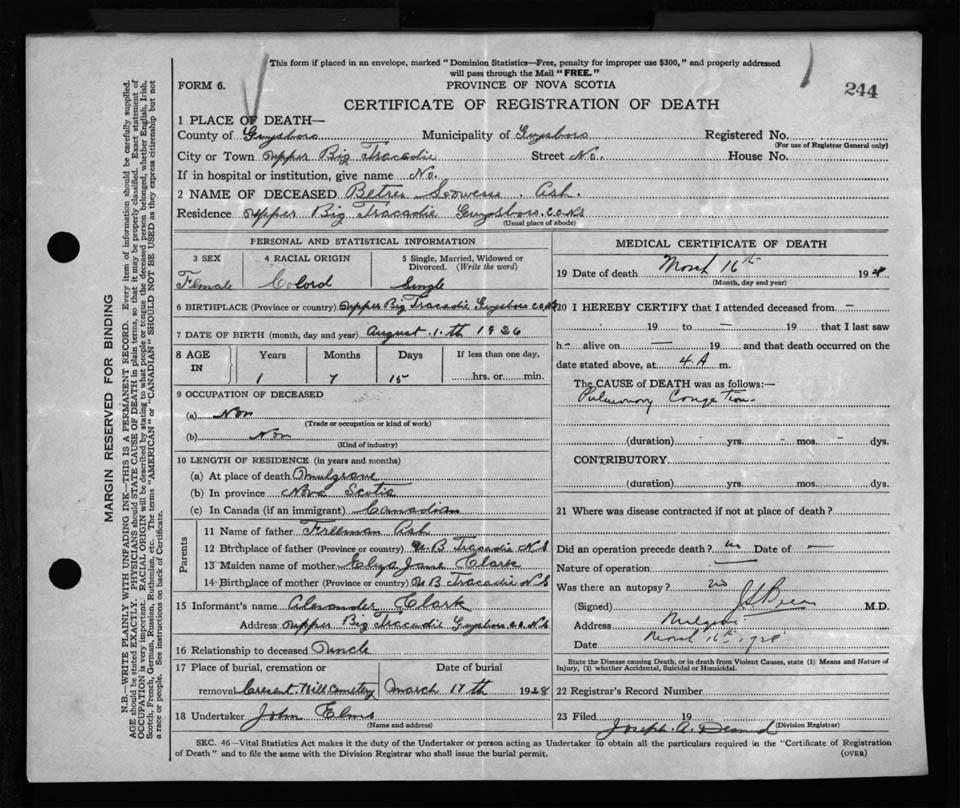 This form if placed in an envelope, marked "Dominion Statistics—Free, penalty for improper use $300," and properly addressed
will pass through the Mail "FREE."
FORM 6. PROVINCE OF NOVA SCOTIA 244
CERTIFICATE OF REGISTRATION OF DEATH
1 PLACE OF DEATH—
County of Guysboro Municipality of Guysboro Registered No.
(For use of Registrar General only)
City or Town Upper Big Tracadie Street No. House No.
If in hospital or institution, give name No.
2 NAME OF DECEASED Ash.
Residence Upper Big Tracadie Guysboro. C.O. N.S
(Usual place of abode)
PERSONAL AND STATISTICAL INFORMATION
3 SEX 4 RACIAL ORIGIN 5 Single, Married, Widowed or
Divorced. (Write the word)
Female Colord Single
6 BIRTHPLACE (Province or country) Upper Big Tracadie Guysboro C.O. N.S
7 DATE OF BIRTH (month, day and year) August. 1. th 1926
8 AGE IN Years Months Days If less than one day,
1 7 15 hrs. or min.
9 OCCUPATION OF DECEASED
(a) Non
(Trade or occupation or kind of work)
(b) Non
(Kind of industry)
10 LENGTH OF RESIDENCE (in years and months)
(a) At place of death
(b) In province Nova Scotia
(c) In Canada (if an immigrant) Canadian
Parents
11 Name of father Freeman Ash
12 Birthplace of father (Province or country) U. B Tracadie N S
13 Maiden name of mother Eliza Jane Clark
14 Birthplace of mother (Province or country) U B. Tracadie N. S
15 Informant's name Alexander Clark
Address Upper Big Tracadie Guysboro C.O. N.S
16 Relationship to deceased Uncle
17 Place of burial, cremation or Date of burial
removal Cresent Hill Cemetery March 17 th 1928
18 Undertaker John Elms
(Name and address)
MEDICAL CERTIFICATE OF DEATH
19 Date of death March 16th 1928
(Month, day and year)
20 I HEREBY CERTIFY that I attended deceased from —
19 to — 19 that I last saw
h — alive on — 19 and that death occurred on the
date stated above, at 4. A m.
The CAUSE of DEATH was as follows:—
Pulmonary Congestion
(duration) yrs. mos. dys.
CONTRIBUTORY
(duration) yrs. mos. dys.
21 Where was disease contracted if not at place of death?
Did an operation precede death? no Date of —
Nature of operation
Was there an autopsy? no
(Signed) M.D.
Address Mulgrave
Date March 16th 1928
State the Disease causing Death, or in death from Violent Causes, state (1) Means and Nature of
Injury, (2) whether Accidental, Suicidal or Homicidal.
22 Registrar's Record Number
23 Filed 19
Joseph. A. (Division Registrar)
SEC. 46—Vital Statistics Act makes it the duty of the Undertaker or person acting as Undertaker to obtain all the particulars required in the "Certificate of Registration
of Death" and to file the same with the Division Registrar who shall issue the burial permit. (OVER)
MARGIN RESERVED FOR BINDING
N.B.—WRITE PLAINLY WITH UNFADING INK—THIS IS A PERMANENT RECORD. Every item of information should be carefully supplied.
AGE should be stated EXACTLY. PHYSICIANS should STATE CAUSE OF DEATH in plain terms, so that it may be properly classified. Exact statement of
OCCUPATION is very important. RACIAL ORIGIN will be described by stating to what people or tongue the deceased person belonged, whether English, Irish,
Scotch, French, German, Russian, Ruthenian, etc. The terms "AMERICAN" or "CANADIAN" SHOULD NOT BE USED as they express citizenship but not
a race or people. See instructions on back of Certificate.